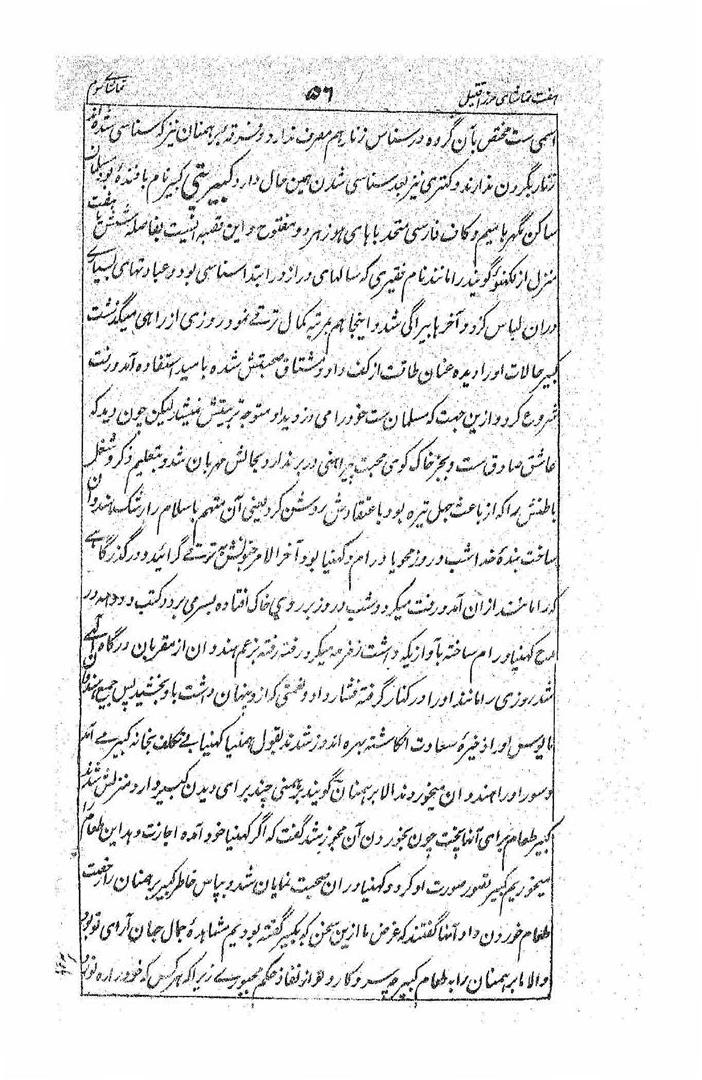 هفت تماشای مرزا قتیل ۵۶ تماشای سوم
اسمی ست مختص بآن گروه در سناس زنار هم مصرف ندارد و فرقه برهمنان نیز که سناسی شده اند
زنار بگردن ندارند و کتری نیز بعد سناسی شدن همین حال دارد کبیر پنتهی کبیر نام بافندۀ بود مسلمان
ساکن مگهر با میم و کاف فارسی متحد با های هوز هر دو مفتوح و این قصبه ایست بفاصلۀ شش یا هفت
منزل از لکهنؤ گویند رامانند نام فقیری که سالهای دراز در ابتدا سناسی بود و عبادتهای بسیاری
دران لباس کرد و آخرها بیراگی شد و اینجا هم بمرتبۀ کمال ترقی نمود روزی از راهی میگذشت
کبیر حالات او را دیده عنان طاقت از کف داد و مشتاق صحبتش شده بامید استفاده آمد و رفت
شروع کرد و ازین جهت که مسلمان ست خود را می دزدید و متوجه تربیتش نمیشد لیکن چون دید که
عاشق صادق ست و بجز خاک کوی محبت پیراهنی در بر ندارد بحالش مهربان شد و بتعلیم ذکر و شغل
باطنش را که از باعث جهل تیره بود باعتقادش روشن کرد یعنی آن متهم باسلام را رشک هندوان
ساخت بندۀ خدا شب و روز محو یاد رام و کنهیا بود آخر الامر جنونش بترقی گرائید و در گذرگاهی
که رامانند ازان آمد و رفت میکرد شب و روز بر روی خاک افتاده بسر می برد و کتب و دوهه در
مدح کنهیا و رام ساخته بآوازیکه داشت زمزمه میکرد رفته رفته بزعم هندوان از مقربان درگاه الهی
شد روزی رامانند او را در کنار گرفته فشار داد و نعمتی که ازو پنهان داشت باو بخشید پس جمیع هندوان
پابوس او را ذخیرۀ سعادت انگاشته بهره اندوز شدند بقول هندیا کنهیا بی تکلف بخانه کبیر می آمد
و سور او را هندوان میخوردند الا برهمنان گویند برهمنی چند برای دیدن کبیر وارد منزلش شدند
کبیر طعام برای آنها پخت چون بخوردن آن مجوز شد گفت که اگر کنهیا خود آمده اجازت دهد این طعام را
میخوریم کبیر تصور صورت او کرد و کنهیا دران صحبت نمایان شد و بپاس خاطر کبیر برهمنان را رخصت
طعام خوردن داد آنها گفتند که غرض ما ازین سخن که بکبیر گفته بودیم مشاهدۀ جمال جهان آرای تو بود
والا ما برهمنان را به طعام کبیر چه سر و کار و هم از نفاذ حکم مجبوریم زیرا که هر کس که خود را بندۀ تو